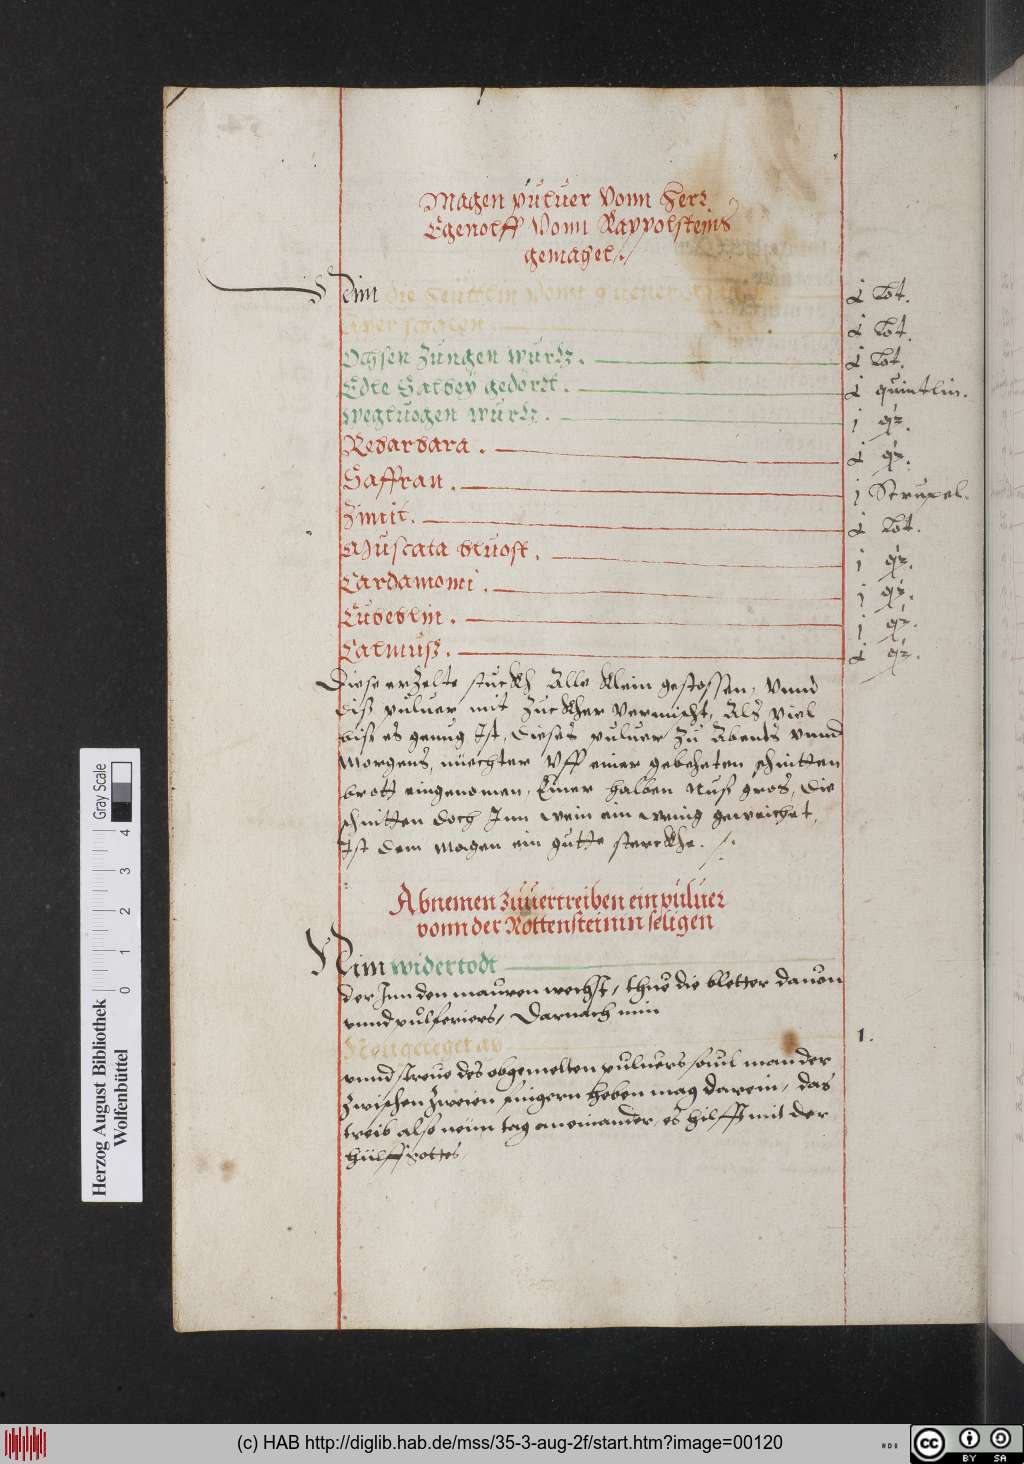 Magen puluer Vonn Herr
Egenolff Vonn Rappolsteins
gemahel ./.
Nim die heüttlin Vonn
j Lot.
Ayer schalen
j Lot.
Ochsen Zungen wurtz .
j Lot.
Edle Salbey gedörrt .
j quintlin.
Wegluogen wurtz .
j qz.
Rebarbara .
j qz.
Saffran .
j Scrupel.
Zimit .
j Lot.
Muscata bluost .
j qz.
Cardamomi .
j qz.
Cubeblin .
j qz.
Calmuß .
j qz.
Diese erzelte stückh Alle klein gestossen, Vnnd
diß puluer mit Zuckher vermischt, Als viel
biß es genug Ist, dieses puluer zu Abents vnnd
Morgens, nüechter Vff einer gebeheten schnitten
brott eingenomen, Einer halben Nuß gros, die
schnitten doch Inn wein ein wenig geweichet,
Ist dem Magen ein gutte sterckhe. ./.
Abnemen zuuertreiben ein puluer
vonn der Rottensteinin seligen
Nim widertodt
der Inn den mauren wechst, thue die bletter dauon
vnnd pulferiers, Darnach nim
Neu geleget ay
1.
vnnd streue des obgemelten puluers souil man der
zwischen zweien fingern heben mag darein, das
treib also neun tag aneinander, es hilfft mit der
hülff gottes.
Herzog August Bibliothek
Wolfenbüttel
0 1 2 3 4
Gray Scale
(c) HAB http://diglib.hab.de/mss/35-3-aug-2f/start.htm?image=00120
cc BY SA